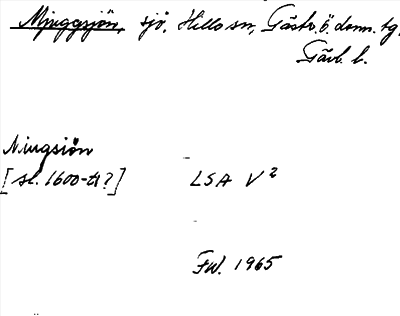 Mjuggsjön, sjö, Hille sn, Gästr. ö. doms. tg,
Gävl. l.
Niugsiön
[sl. 1600-t?] LSA V²
FW. 1965